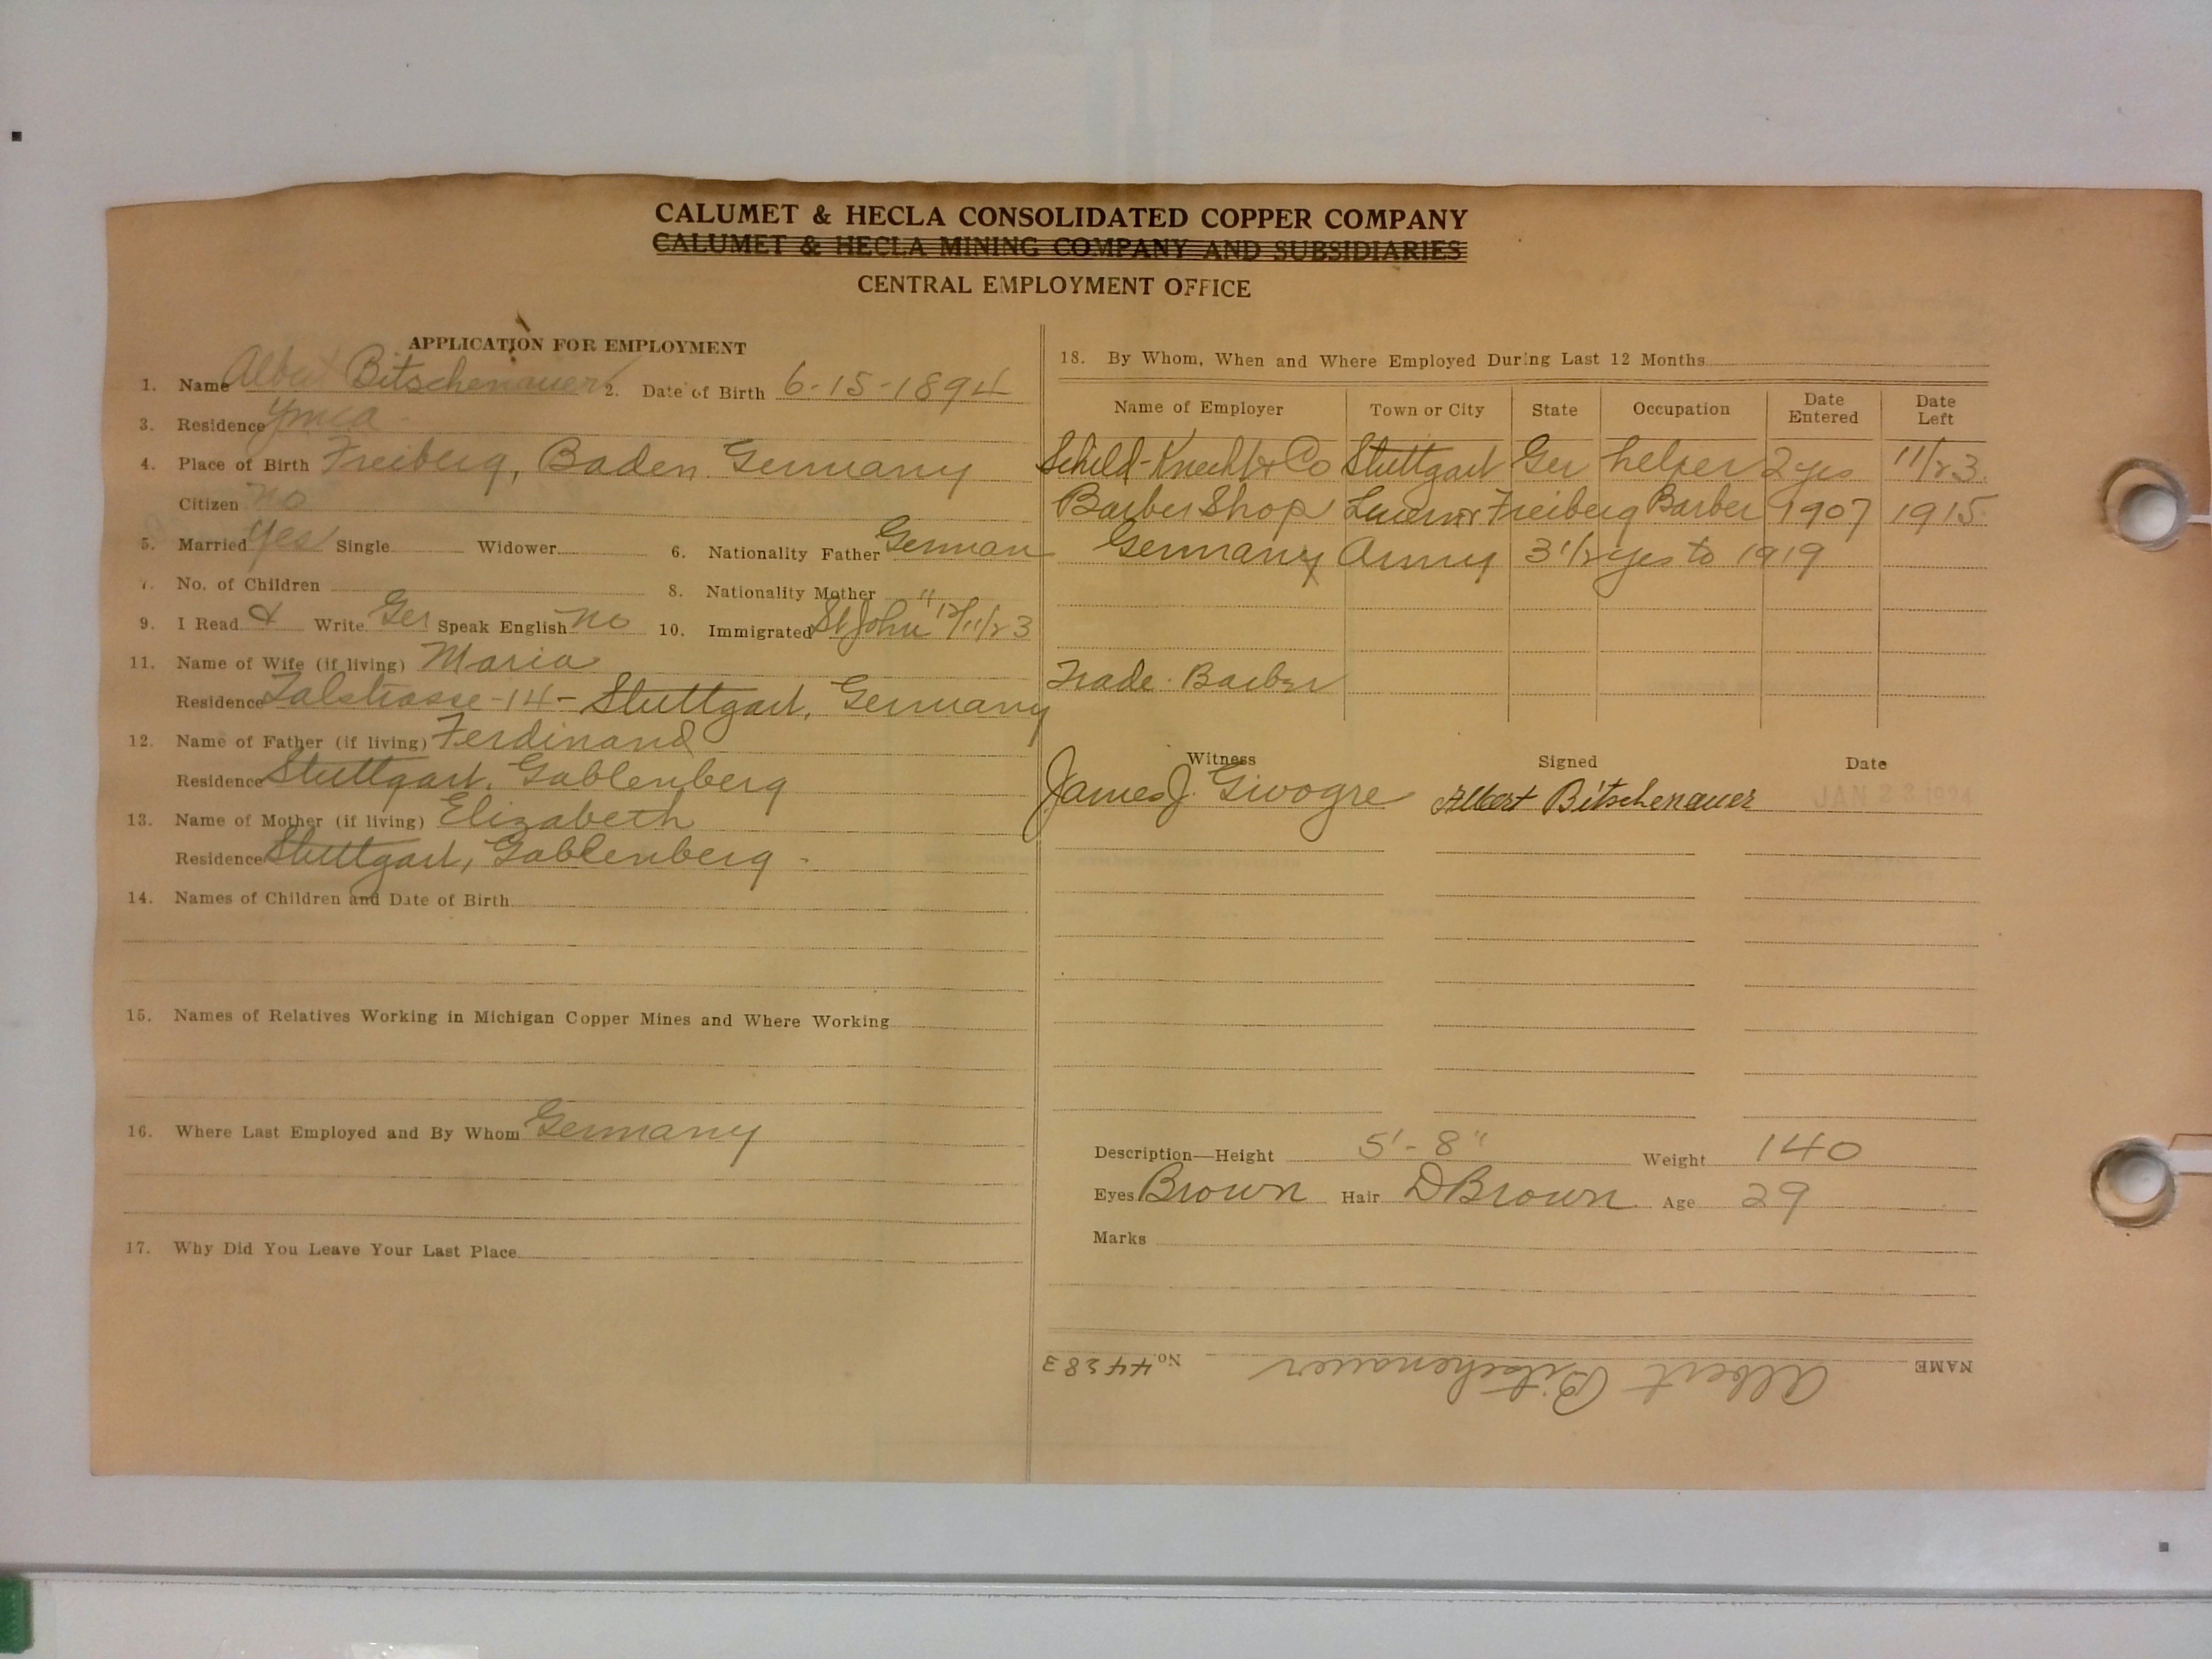 CALUMET & HECLA CONSOLIDATED COPPER COMPANY
CALUMET & HECLA MINING COMPANY AND SUBSIDIARIES
CENTRAL EMPLOYMENT OFFICE
APPLICATION FOR EMPLOYMENT
1. Name Albert Bitschenauer 2. Date of Birth 6-15-1894
3. Residence Ymca
4. Place of Birth Freiberg, Baden Germany
Citizen no
5. Married Yes Single Widower 6. Nationality Father German
7. No. of Children 8. Nationality Mother "
9. I Read & Write Ger Speak English no 10. Immigrated St John 12/11/23
11. Name of Wife (if living) Maria
Residence Talstrasse-14- Stuttgart, Germany
12. Name of Father (if living) Ferdinand
Residence Stuttgart, Gablenberg
13. Name of Mother (if living) Elizabeth
Residence Stuttgart, Gablenberg
14. Names of Children and Date of Birth
15. Names of Relatives Working in Michigan Copper Mines and Where Working
16. Where Last Employed and By Whom Germany
17. Why Did You Leave Your Last Place
18. By Whom, When and Where Employed During Last 12 Months
Name of Employer Town or City State Occupation Date Entered Date Left
Schild-Knecht & Co Stuttgart Ger helper 2 yrs 11/23
Barber Shop Freiberg Barber 1907 1915
Germany Army 3 1/2 yrs to 1919
Trade - Barber
Witness Signed Date
James J. Givogre Albert Bitschenauer JAN 23 1924
Description—Height 5'-8" Weight 140
Eyes Brown Hair D Brown Age 29
Marks
NAME Albert Bitschenauer No. 44383